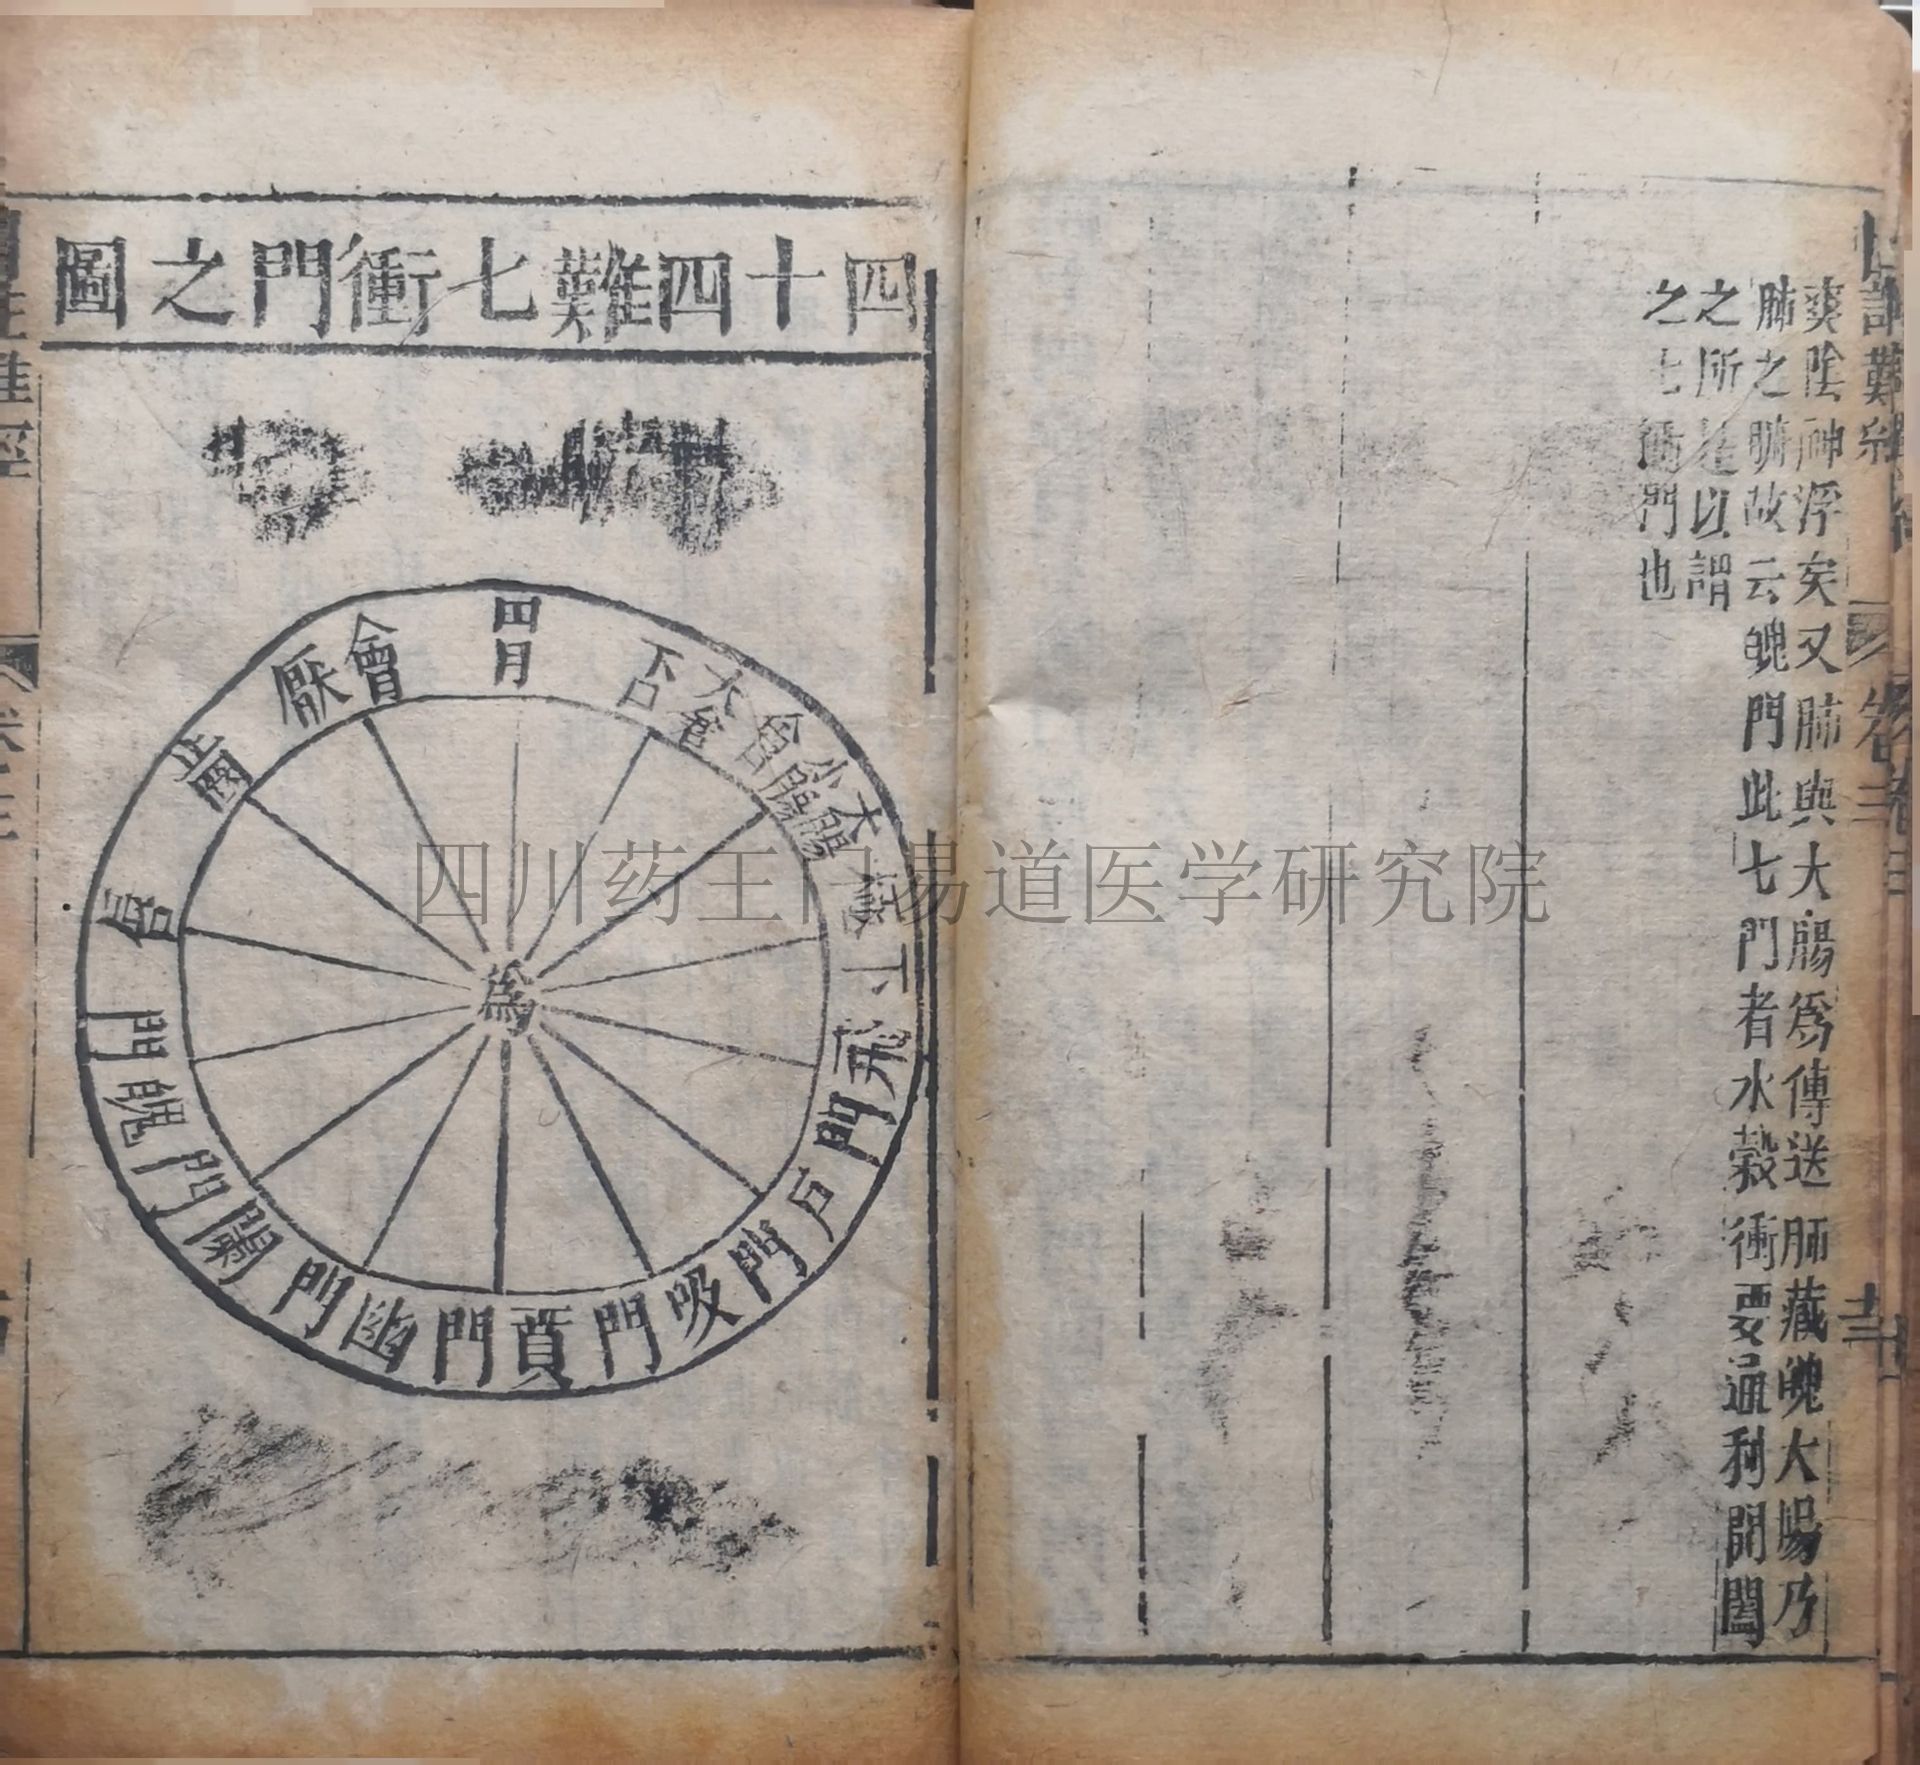 爽陰神浮矣又肺與大腸爲傳送肺藏魄大腸乃
肺之腑故云魄門此七門者水穀衝要通利開闔
之所是以謂
之七衝門也
四十四難七衝門之圖
胃
下口
大倉
會
小腸
大腸
極
下
飛門
戶門
吸門
賁門
幽門
闌門
魄門
唇
齒
會厭
爲
四川药王门易道医学研究院